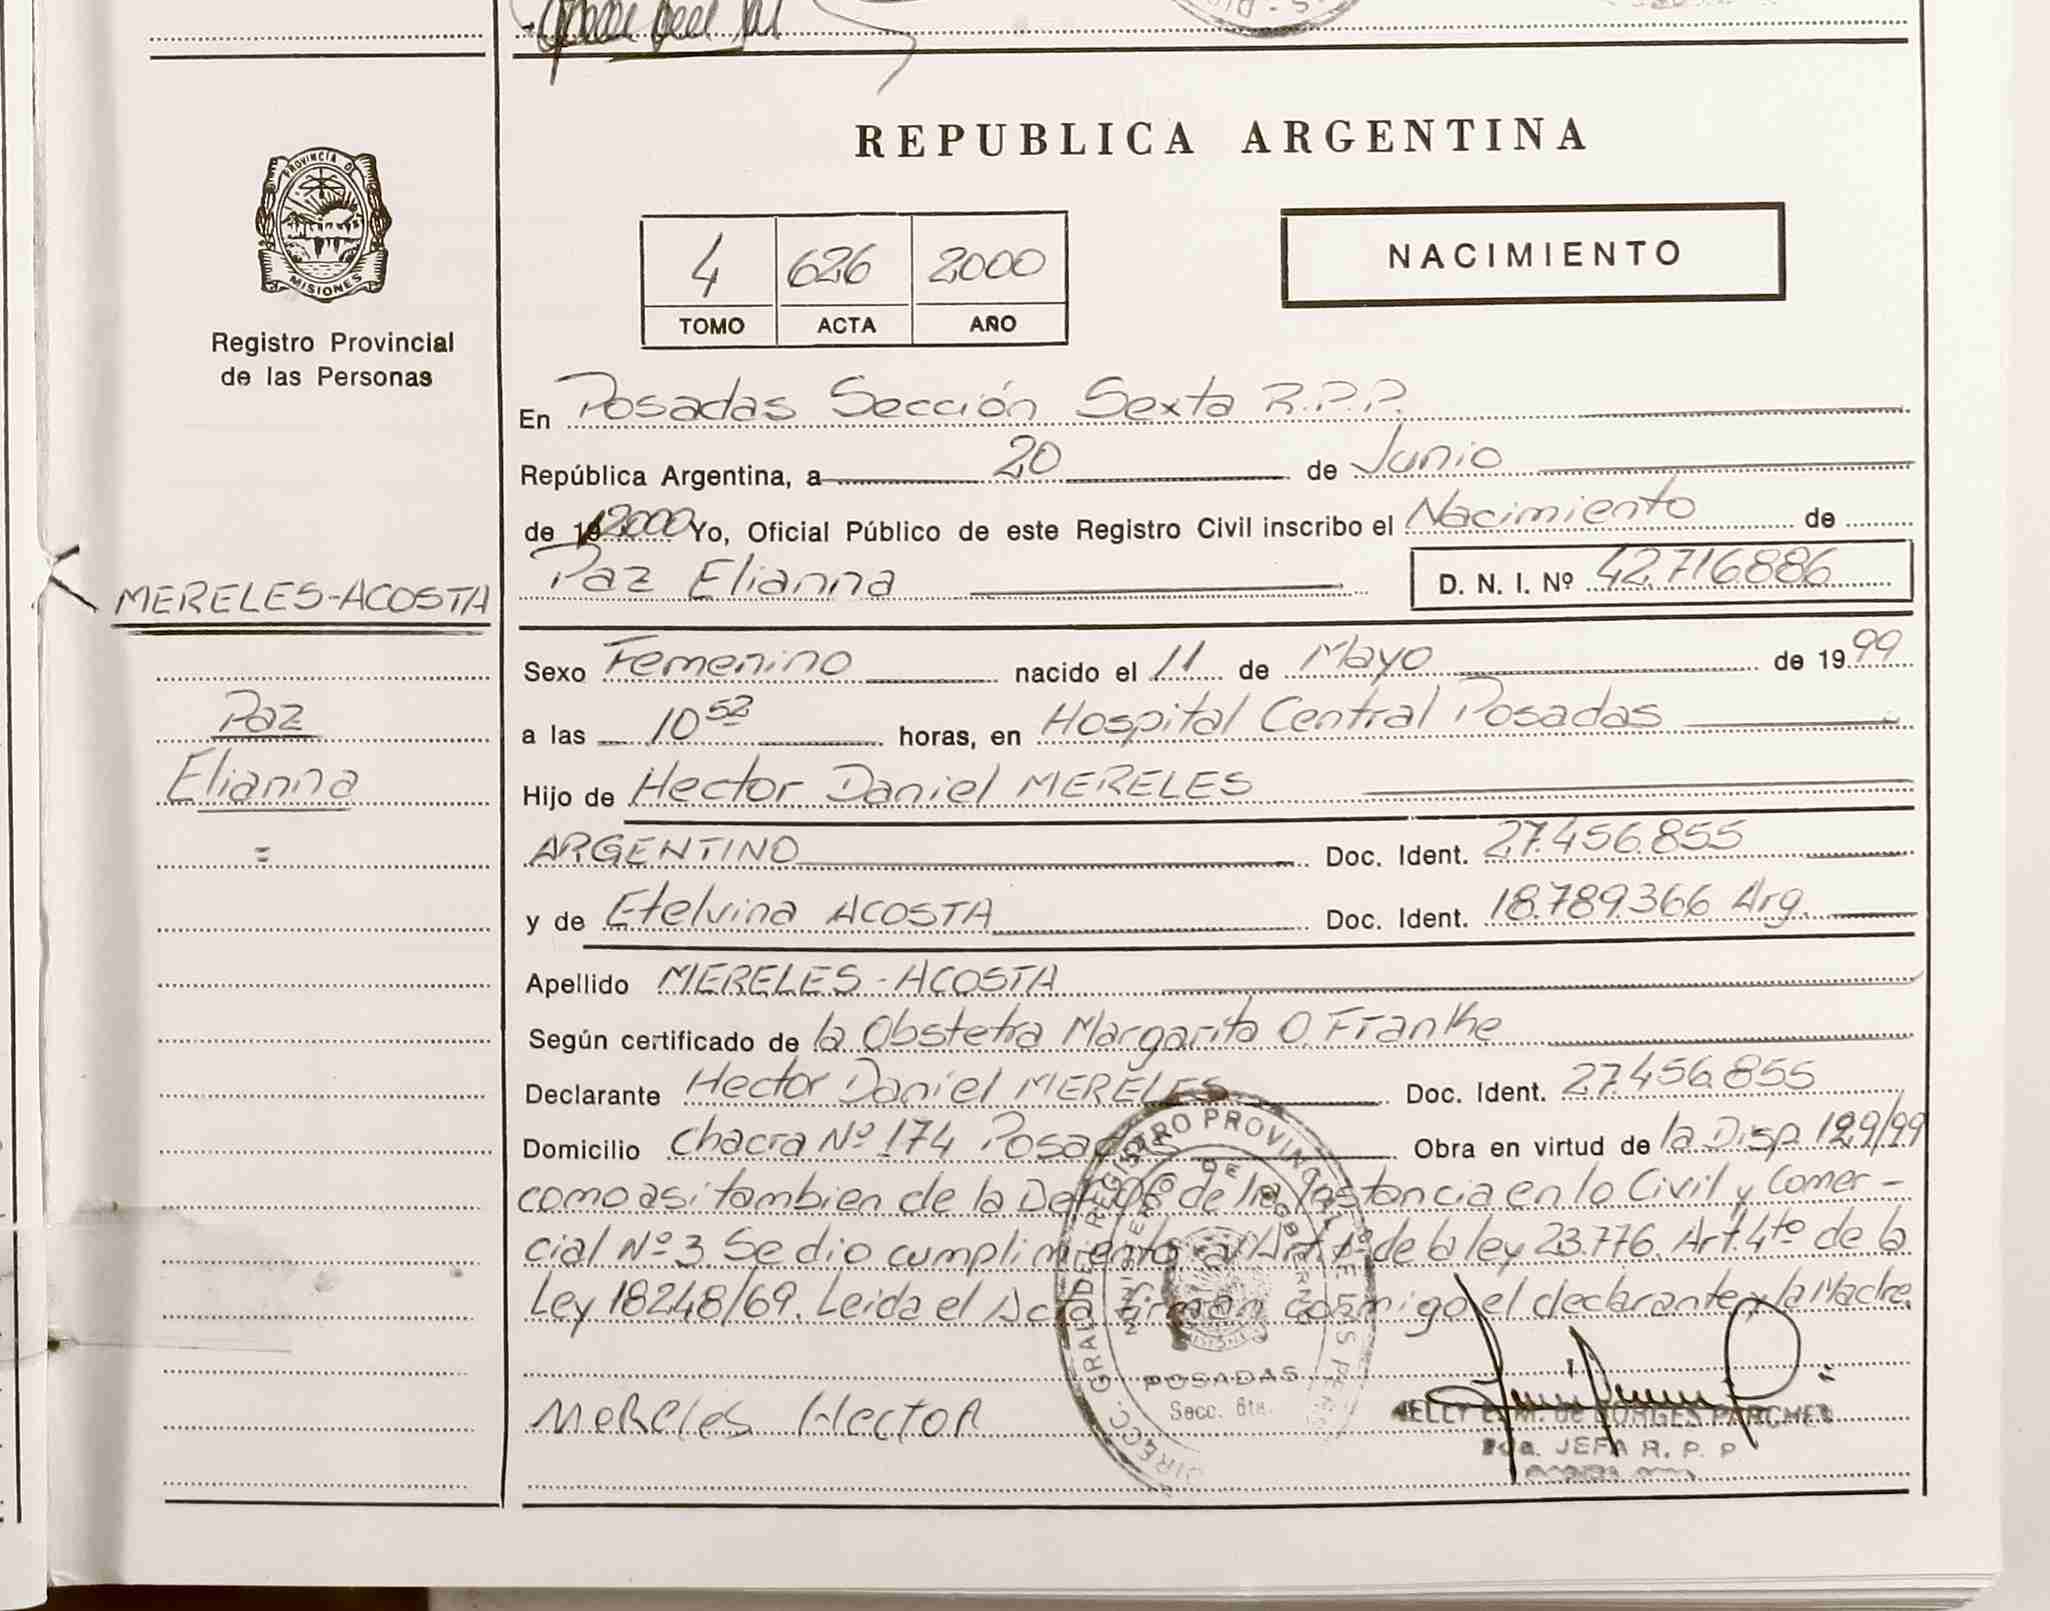 PROVINCIA DE
MISIONES
Registro Provincial
de las Personas
MERELES-ACOSTA
Paz
Elianna
=
REPUBLICA ARGENTINA
4 626 2000
TOMO ACTA AÑO
NACIMIENTO
En Posadas Sección Sexta R.P.P.
República Argentina, a 20 de Junio
de 19 2000 Yo, Oficial Público de este Registro Civil inscribo el Nacimiento de
Paz Elianna D. N. I. Nº 42.716.886
Sexo Femenino nacido el 11 de Mayo de 1999
a las 10 52 horas, en Hospital Central Posadas
Hijo de Hector Daniel MERELES
ARGENTINO Doc. Ident. 27.456.855
y de Etelvina ACOSTA Doc. Ident. 18.789.366 Arg.
Apellido MERELES-ACOSTA
Según certificado de la Obstetra Margarita O. Franke
Declarante Hector Daniel MERELES Doc. Ident. 27.456.855
Domicilio Chacra Nº 174 Posadas Obra en virtud de la Disp. 129/99
como asi tambien de la de Instancia en lo Civil y Comer-
cial Nº 3. Se dio cumplimiento al Art. de la ley 23.776. Art. 4to de la
Ley 18248/69. Leida el Acta firman conmigo el declarante y la Madre.
MeRcles HectoR
DIRECC. GRAL. DE REGISTRO PROVINCIAL DE LAS PERS
MINISTERIO DE GOBIERNO
POSADAS
Secc. 6ta.
NELLY E. M. de BORGES PARCHEN
JEFA R. P. P